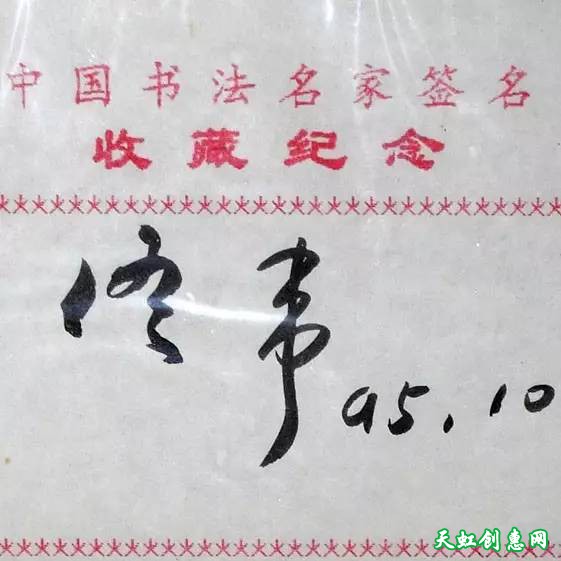 中国书法名家签名
收藏纪念
佟韦 95.10
天虹创惠网